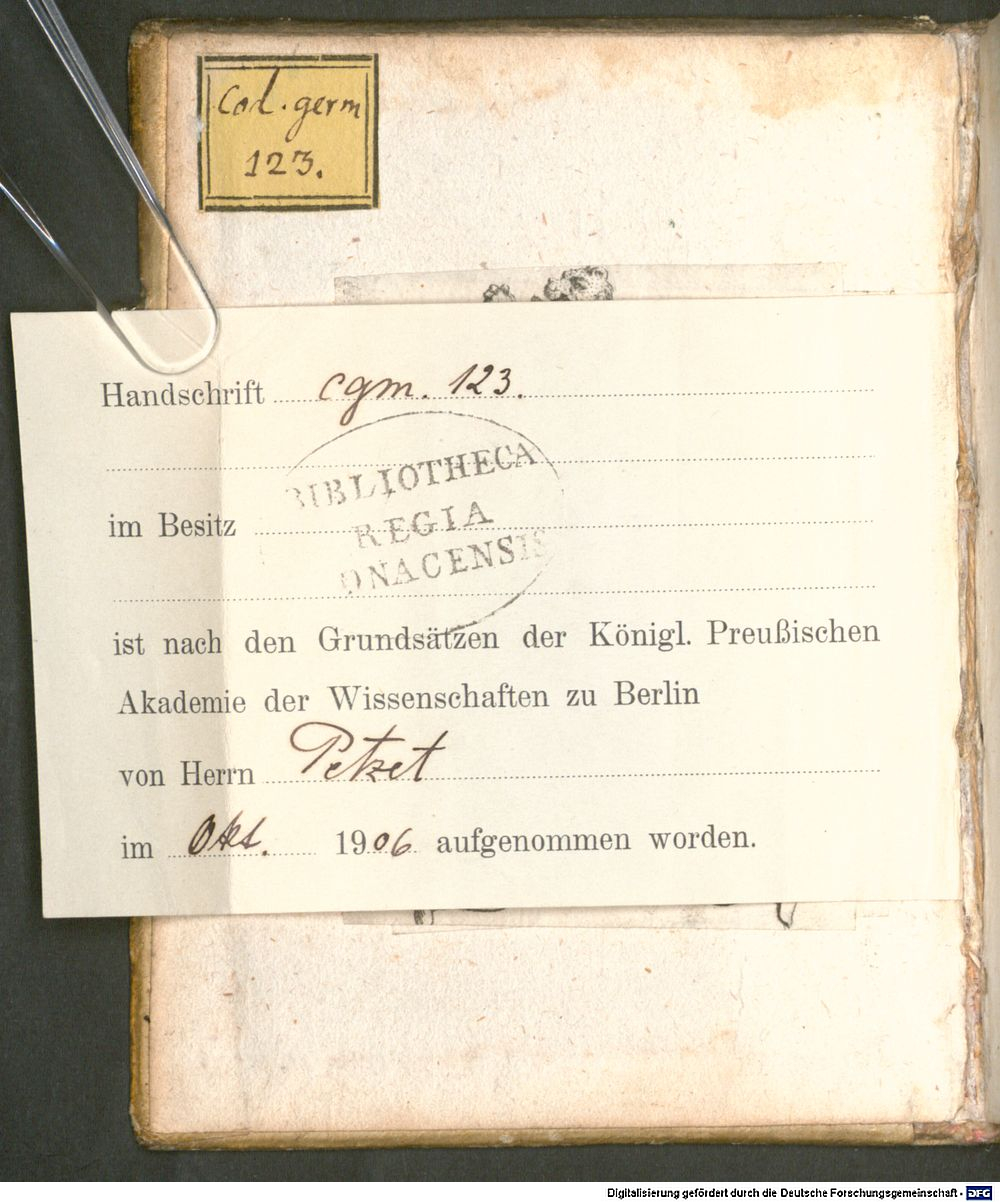 Cod. germ
123.
Handschrift cgm. 123.
BIBLIOTHECA
im Besitz
REGIA
ONACENSIS
ist nach den Grundsätzen der Königl. Preußischen
Akademie der Wissenschaften zu Berlin
von Herrn Petzet
im Okt. 1906 aufgenommen worden.
Digitalisierung gefördert durch die Deutsche Forschungsgemeinschaft - DFG